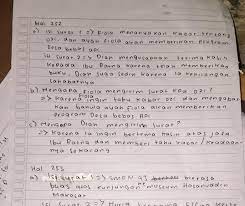 Hal 252
a) isi surat 1 => Fiola menanyakan kabar tentang
ozi dan ayah Fiola akan memberikan program
Desa bebas api.
isi surat 2 => Dian mengucapkan terima kasih
kepada Ibu Ratna karena telah memberikan
buku, Dian juga sedih karena ia kehilangan
sahabatnya
b) Mengapa Fiola mengirim surat kpd ozi?
=> karena Fiola ingin tahu kabar ozi dan mengabar
kan bahwa ayah Fiola akan memberikan
program Desa bebas api.
c) Mengapa Dian mengirim surat?
=> karena ia ingin berterima kasih atas jasa
Ibu Ratna dan memberi tahu kabar / keadaan
nya sekarang
Hal 253
a) isi surat 1 => SMPN 43 berasa
belas atas kunjungan museum Hasanuddin
Makasar